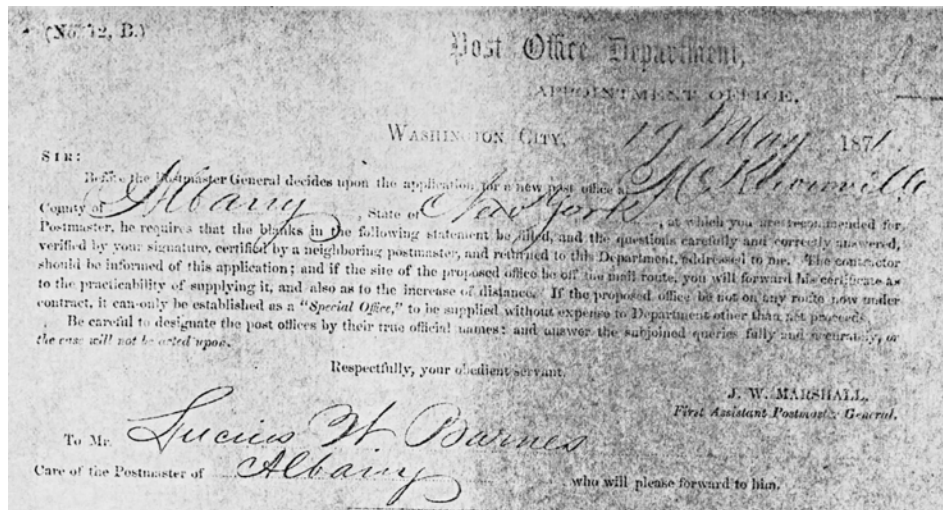 (No. 12, B.)
Post Office Department,
APPOINTMENT OFFICE,
WASHINGTON CITY, 19 May 1871.
SIR:
Before the Postmaster General decides upon the application for a new post office at McKnownville
County of Albany, State of New York, at which you are recommended for
Postmaster, he requires that the blanks in the following statement be filled, and the questions carefully and correctly answered,
verified by your signature, certified by a neighboring postmaster, and returned to this Department, addressed to me. The contractor
should be informed of this application; and if the site of the proposed office be off the mail route, you will forward his certificate as
to the practicability of supplying it, and also as to the increase of distance. If the proposed office be not on any route now under
contract, it can only be established as a "Special Office," to be supplied without expense to Department other than net proceeds.
Be careful to designate the post offices by their true official names; and answer the subjoined queries fully and accurately, or
the case will not be acted upon.
Respectfully, your obedient servant,
J. W. MARSHALL,
First Assistant Postmaster General.
To Mr. Lucius W Barnes
Care of the Postmaster of Albany who will please forward to him.